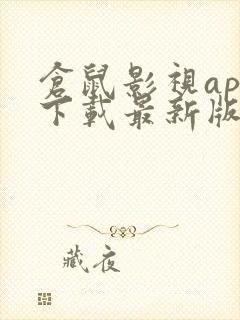 倉鼠影視ap
下載最新版
藏夜